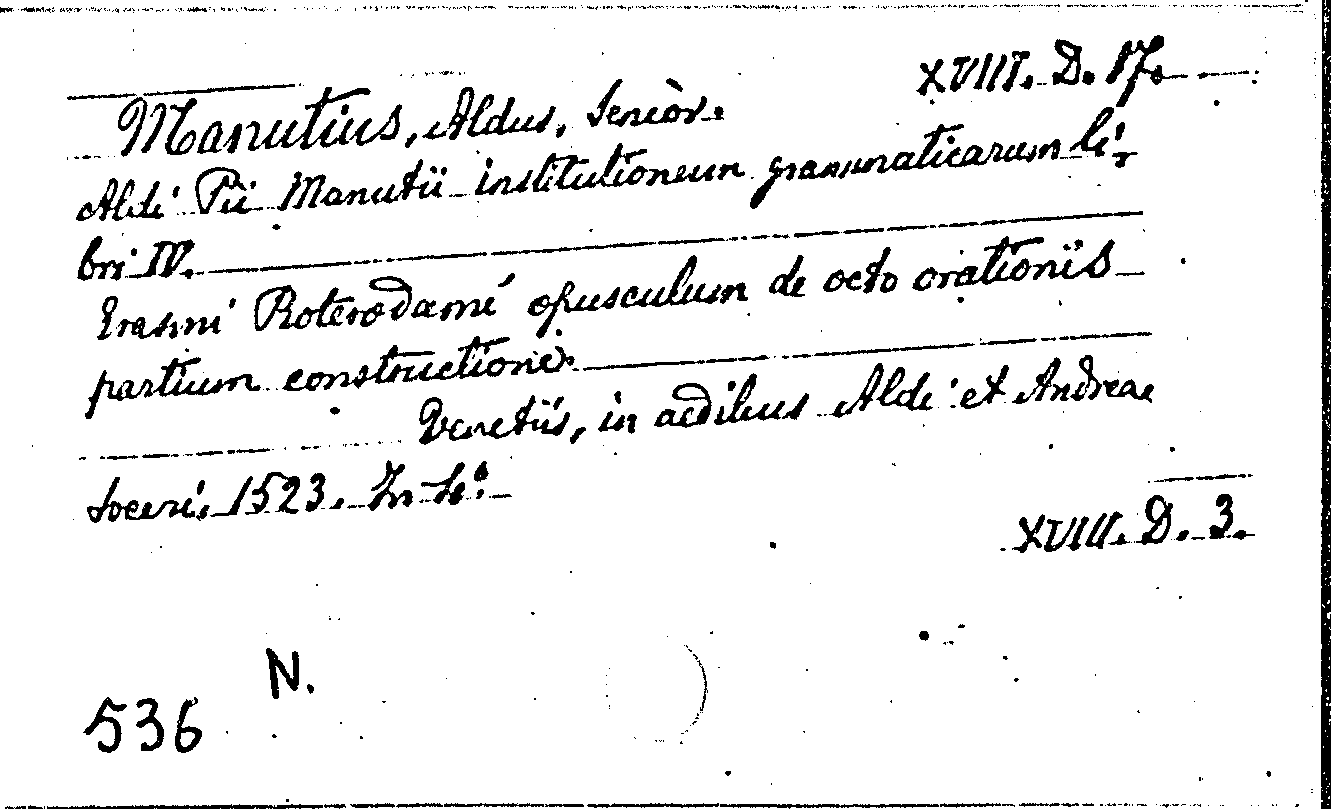 XVIII. D. 17.
Manutius, Aldus, Senior.
Aldi Pii Manutii institutionum grammaticarum li-
bri IV.
Erasmi Roterodami opusculum de octo orationis
partium constructione.
Venetiis, in aedibus Aldi et Andreae
Soceri, 1523. In
XVIII. D. 3.
N.
536